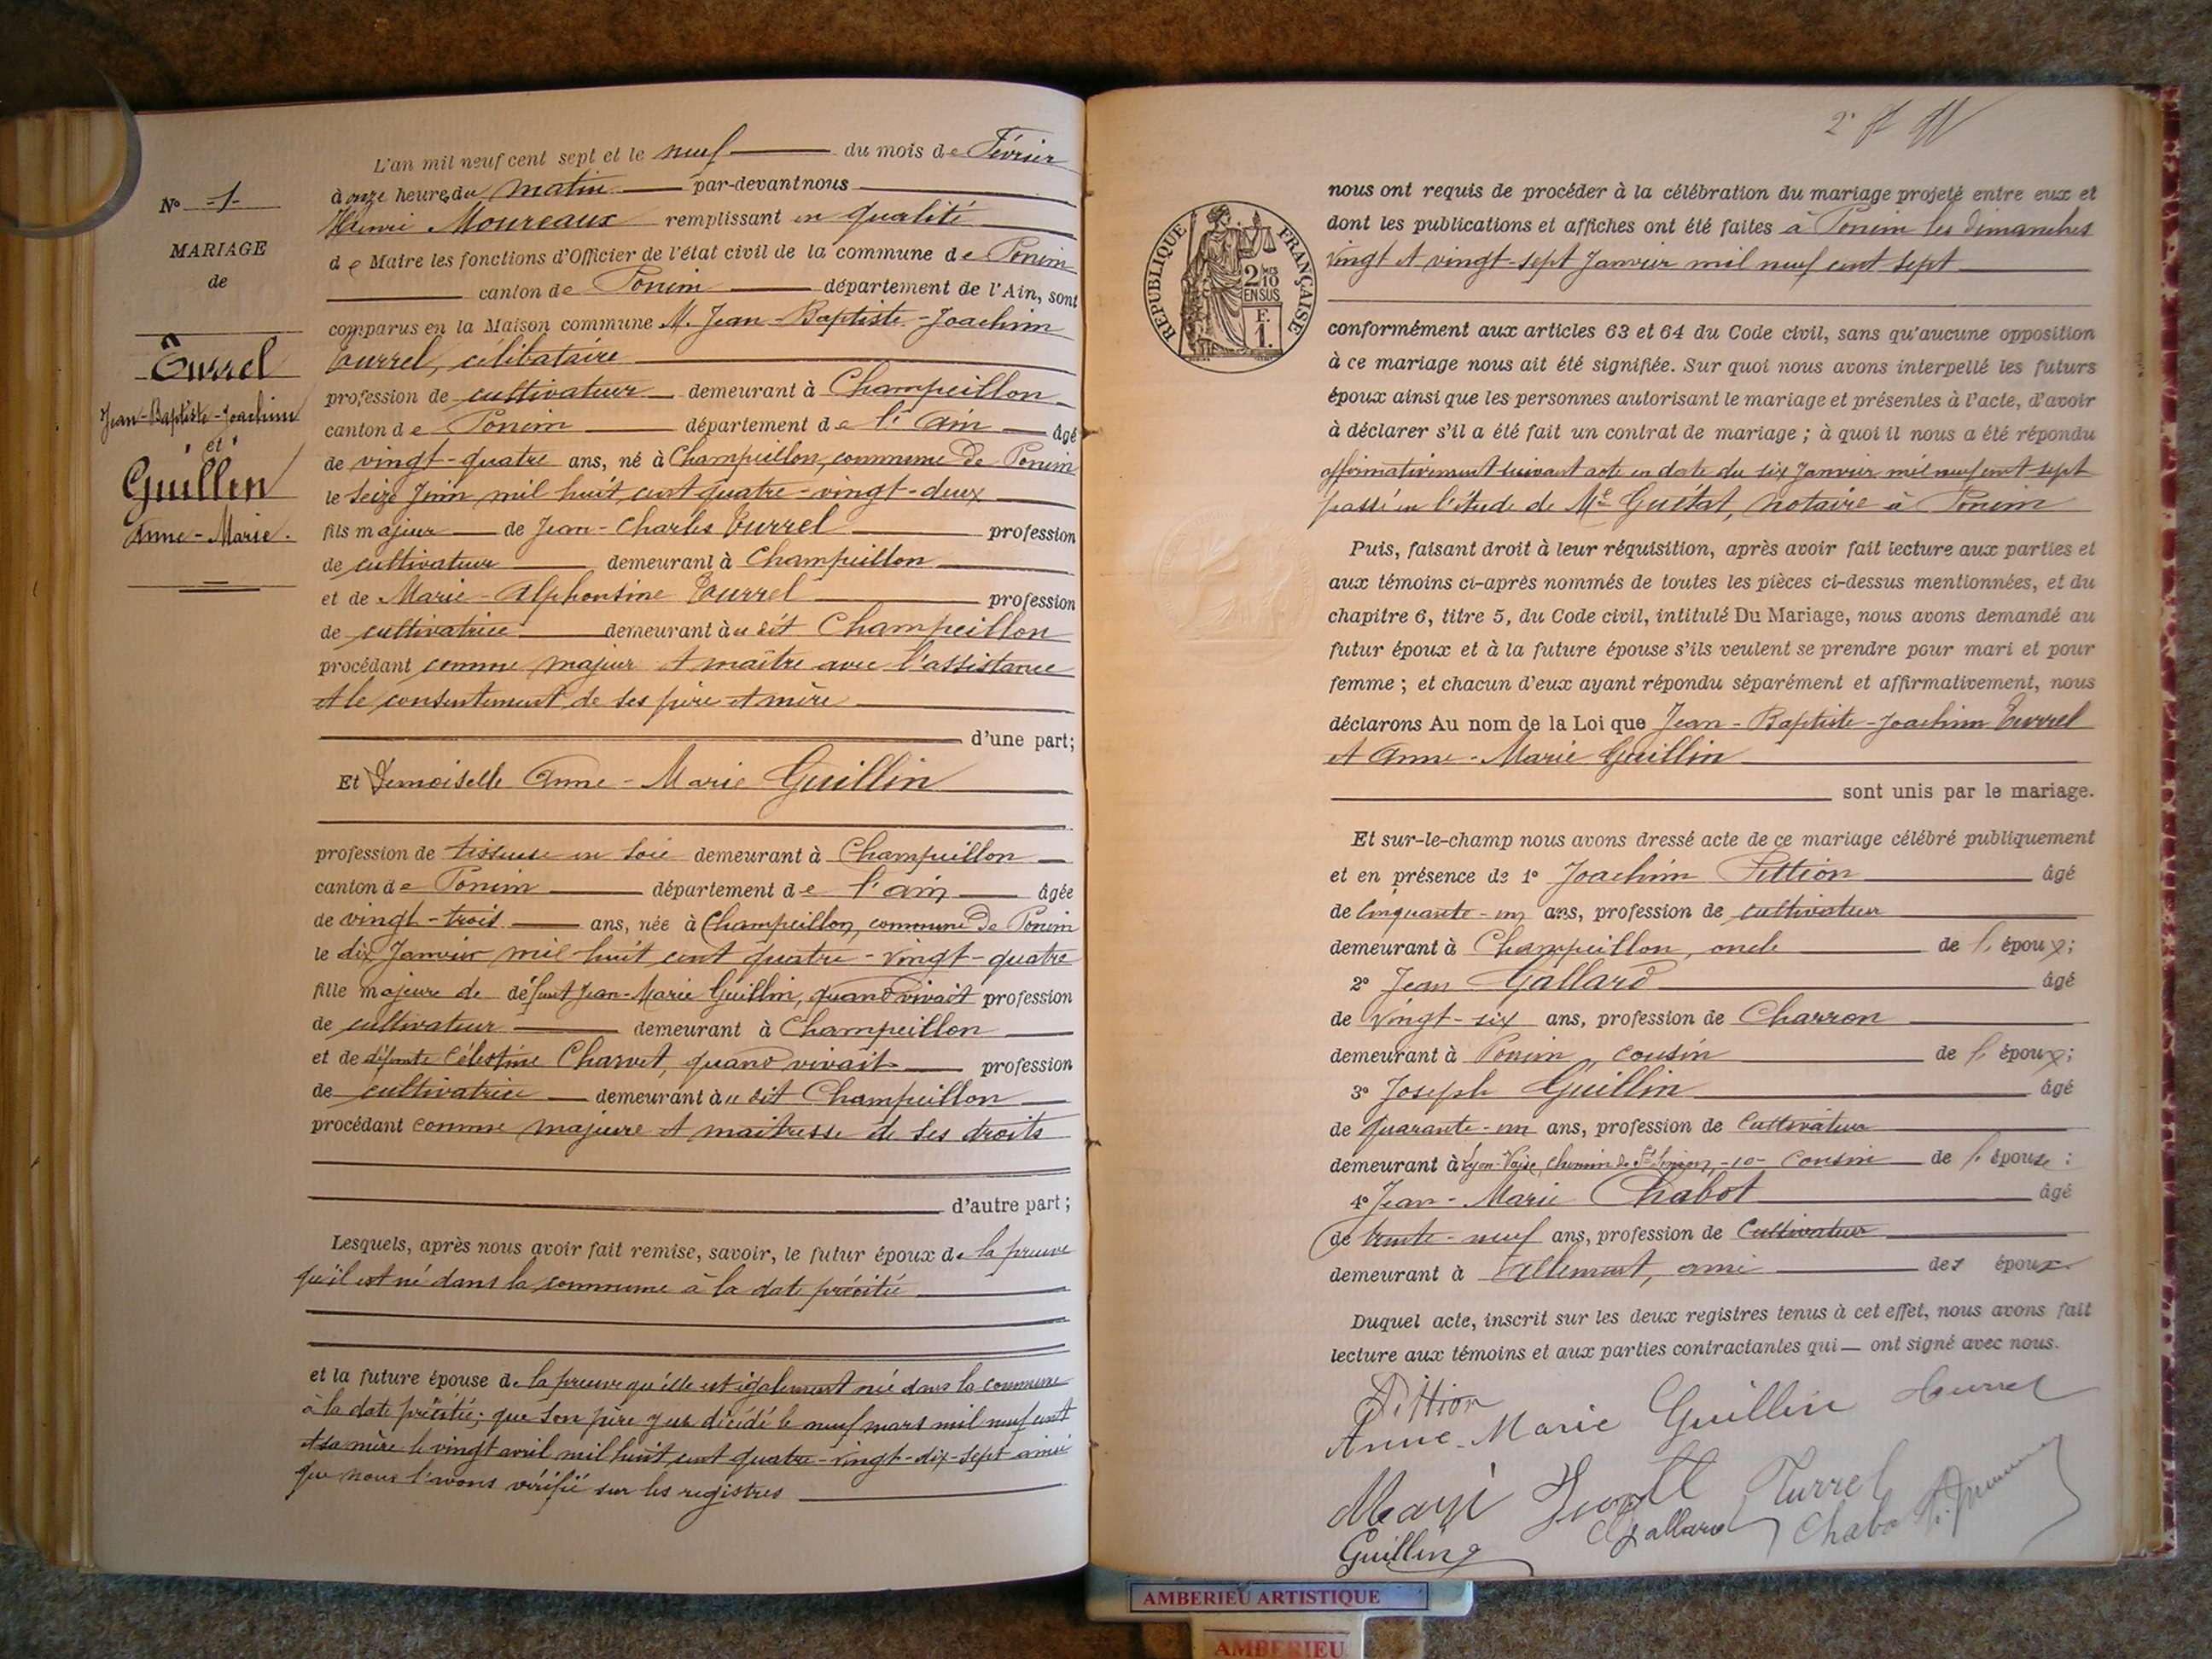 L'an mil neuf cent sept et le neuf du mois de Février
à onze heures du matin par-devant nous
N° 1
Henri Moureaux remplissant en qualité
MARIAGE
de Maire les fonctions d'Officier de l'état civil de la commune de Poncin
de
canton de Poncin département de l'Ain, sont
comparus en la Maison commune M. Jean-Baptiste-Joachim
Turrel
Turrel, célibataire
profession de cultivateur demeurant à Champeillon
Jean-Baptiste-Joachim
canton de Poncin département de l'Ain âgé
et
de vingt-quatre ans, né à Champeillon, commune de Poncin
Guillin
le seize Juin mil huit cent quatre-vingt-deux
Anne-Marie.
fils majeur de Jean-Charles Turrel profession
de cultivateur demeurant à Champeillon
et de Marie-Alphonsine Turrel profession
de cultivatrice demeurant àu dit Champeillon
procédant comme majeur et maître avec l'assistance
et le consentement de ses père et mère
d'une part;
Et Demoiselle Anne-Marie Guillin
profession de tisseuse en soie demeurant à Champeillon
canton de Poncin département de l'Ain âgée
de vingt-trois ans, née à Champeillon, commune de Poncin
le dix Janvier mil huit cent quatre-vingt-quatre
fille majeure de défunt Jean-Marie Guillin, quand vivait profession
de cultivateur demeurant à Champeillon
et de défunte Célestine Charvet, quand vivait profession
de cultivatrice demeurant àu dit Champeillon
procédant comme majeure et maitresse de ses droits
d'autre part;
Lesquels, après nous avoir fait remise, savoir, le futur époux de la preuve
qu'il est né dans la commune à la date précitée
et la future épouse de la preuve qu'elle est également née dans la commune
à la date précitée; que son père y est décédé le neuf mars mil neuf cent
et sa mère le vingt avril mil huit cent quatre-vingt-dix-sept ainsi
que nous l'avons vérifié sur les registres
2e
REPUBLIQUE FRANÇAISE
2/10
EN SUS
F.
1.
nous ont requis de procéder à la célébration du mariage projeté entre eux et
dont les publications et affiches ont été faites à Poncin les dimanches
vingt et vingt-sept Janvier mil neuf cent sept
conformément aux articles 63 et 64 du Code civil, sans qu'aucune opposition
à ce mariage nous ait été signifiée. Sur quoi nous avons interpellé les futurs
époux ainsi que les personnes autorisant le mariage et présentes à l'acte, d'avoir
à déclarer s'il a été fait un contrat de mariage; à quoi il nous a été répondu
affirmativement suivant acte en date du six Janvier mil neuf cent sept
passé en l'étude de Me Guétat, notaire à Poncin
Puis, faisant droit à leur réquisition, après avoir fait lecture aux parties et
aux témoins ci-après nommés de toutes les pièces ci-dessus mentionnées, et du
chapitre 6, titre 5, du Code civil, intitulé Du Mariage, nous avons demandé au
futur époux et à la future épouse s'ils veulent se prendre pour mari et pour
femme; et chacun d'eux ayant répondu séparément et affirmativement, nous
déclarons Au nom de la Loi que Jean-Baptiste-Joachim Turrel
et Anne-Marie Guillin
sont unis par le mariage.
Et sur-le-champ nous avons dressé acte de ce mariage célébré publiquement
et en présence de 1° Joachim Pittion âgé
de cinquante-un ans, profession de cultivateur
demeurant à Champeillon, oncle de l'époux;
2° Jean Gallard âgé
de vingt-six ans, profession de Charron
demeurant à Poncin, cousin de l'époux;
3° Joseph Guillin âgé
de quarante-un ans, profession de Cultivateur
demeurant à Lyon-Vaise, chemin de St Simon, -10- cousin de l'épouse;
4° Jean-Marie Chabot âgé
de trente-neuf ans, profession de Cultivateur
demeurant à Allement, ami des époux
Duquel acte, inscrit sur les deux registres tenus à cet effet, nous avons fait
lecture aux témoins et aux parties contractantes qui ont signé avec nous.
Pittion
Anne-Marie Guillin Turrel
Turrel
Gallard Chabot
Guillin
AMBERIEU ARTISTIQUE
AMBERIEU